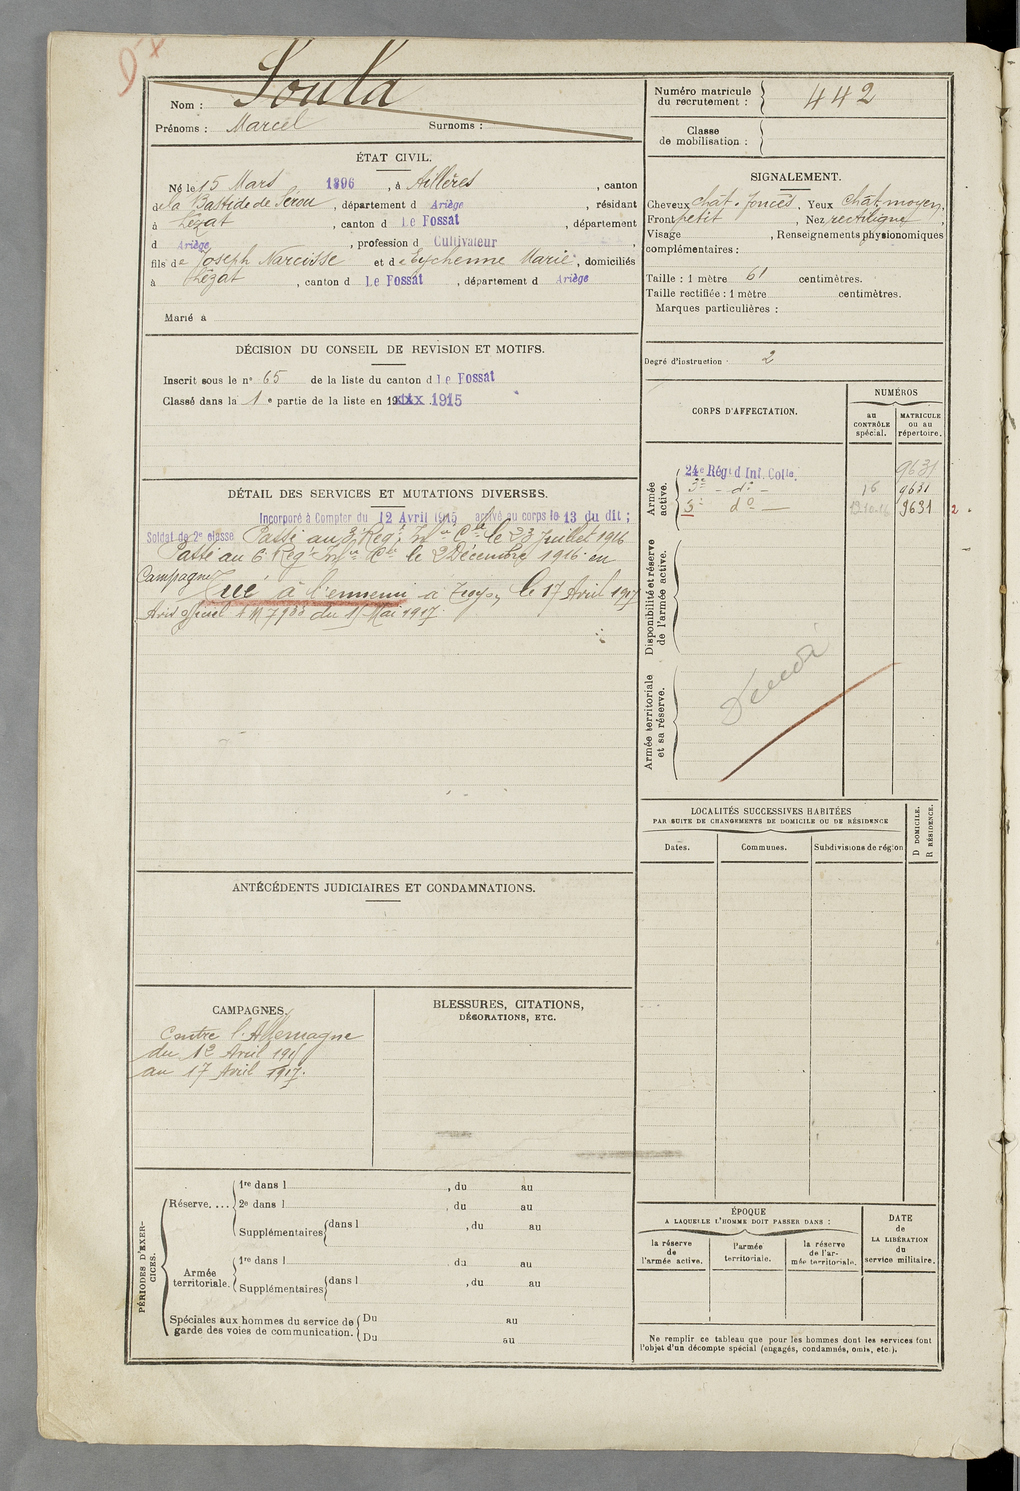 Nom : Soula
Prénoms : Marcel Surnoms :
Numéro matricule du recrutement : 442
Classe de mobilisation :
ÉTAT CIVIL.
Né le 15 Mars 1896, à Aillères, canton
de La Bastide de Sérou, département d Ariège, résidant
à Lézat, canton d Le Fossat, département
d Ariège, profession d Cultivateur,
fils de Joseph Narcisse et de Eychenne Marie, domiciliés
à Lézat, canton d Le Fossat, département d Ariège
Marié à
SIGNALEMENT.
Cheveux chât. foncés, Yeux chât. moyen,
Front petit, Nez rectiligne,
Visage , Renseignements physionomiques
complémentaires :
Taille : 1 mètre 61 centimètres.
Taille rectifiée : 1 mètre centimètres.
Marques particulières :
Degré d'instruction : 2
DÉCISION DU CONSEIL DE REVISION ET MOTIFS.
Inscrit sous le n° 65 de la liste du canton d Le Fossat
Classé dans la 1e partie de la liste en 19xxx 1915
DÉTAIL DES SERVICES ET MUTATIONS DIVERSES.
Incorporé à Compter du 12 Avril 1915 arrivé au corps le 13 du dit ;
Soldat de 2e classe Passé au 3e Régt Infie Cle le 23 Juillet 1916
Passé au 6e Régt Infie Cle le 2 Décembre 1916. en
Campagne Tué à l'ennemi à le 17 Avril 1917
Avis officiel du Mai 1917.
CORPS D'AFFECTATION.
NUMÉROS
au CONTRÔLE spécial.
MATRICULE ou au répertoire.
Armée active.
24e Régt d'Inf. Colle. 9631
3e - do - 16 9631
3e do - 9631 2
Disponibilité et réserve de l'armée active.
Armée territoriale et sa réserve.
LOCALITÉS SUCCESSIVES HABITÉES
PAR SUITE DE CHANGEMENTS DE DOMICILE OU DE RÉSIDENCE
Dates. Communes. Subdivisions de région
D DOMICILE.
R RÉSIDENCE.
ANTÉCÉDENTS JUDICIAIRES ET CONDAMNATIONS.
CAMPAGNES.
Contre l'Allemagne
du 12 Avril 1915
au 17 Avril 1917.
BLESSURES, CITATIONS,
DÉCORATIONS, ETC.
PÉRIODES D'EXERCICES.
Réserve....
1re dans l , du au
2e dans l , du au
Supplémentaires dans l , du au
Armée territoriale.
1re dans l , du au
Supplémentaires dans l , du au
Spéciales aux hommes du service de
garde des voies de communication.
Du au
Du au
ÉPOQUE
A LAQUELLE L'HOMME DOIT PASSER DANS :
la réserve de l'armée active.
l'armée territoriale.
la réserve de l'armée territoriale.
DATE de LA LIBÉRATION du service militaire.
Ne remplir ce tableau que pour les hommes dont les services font
l'objet d'un décompte spécial (engagés, condamnés, omis, etc.).